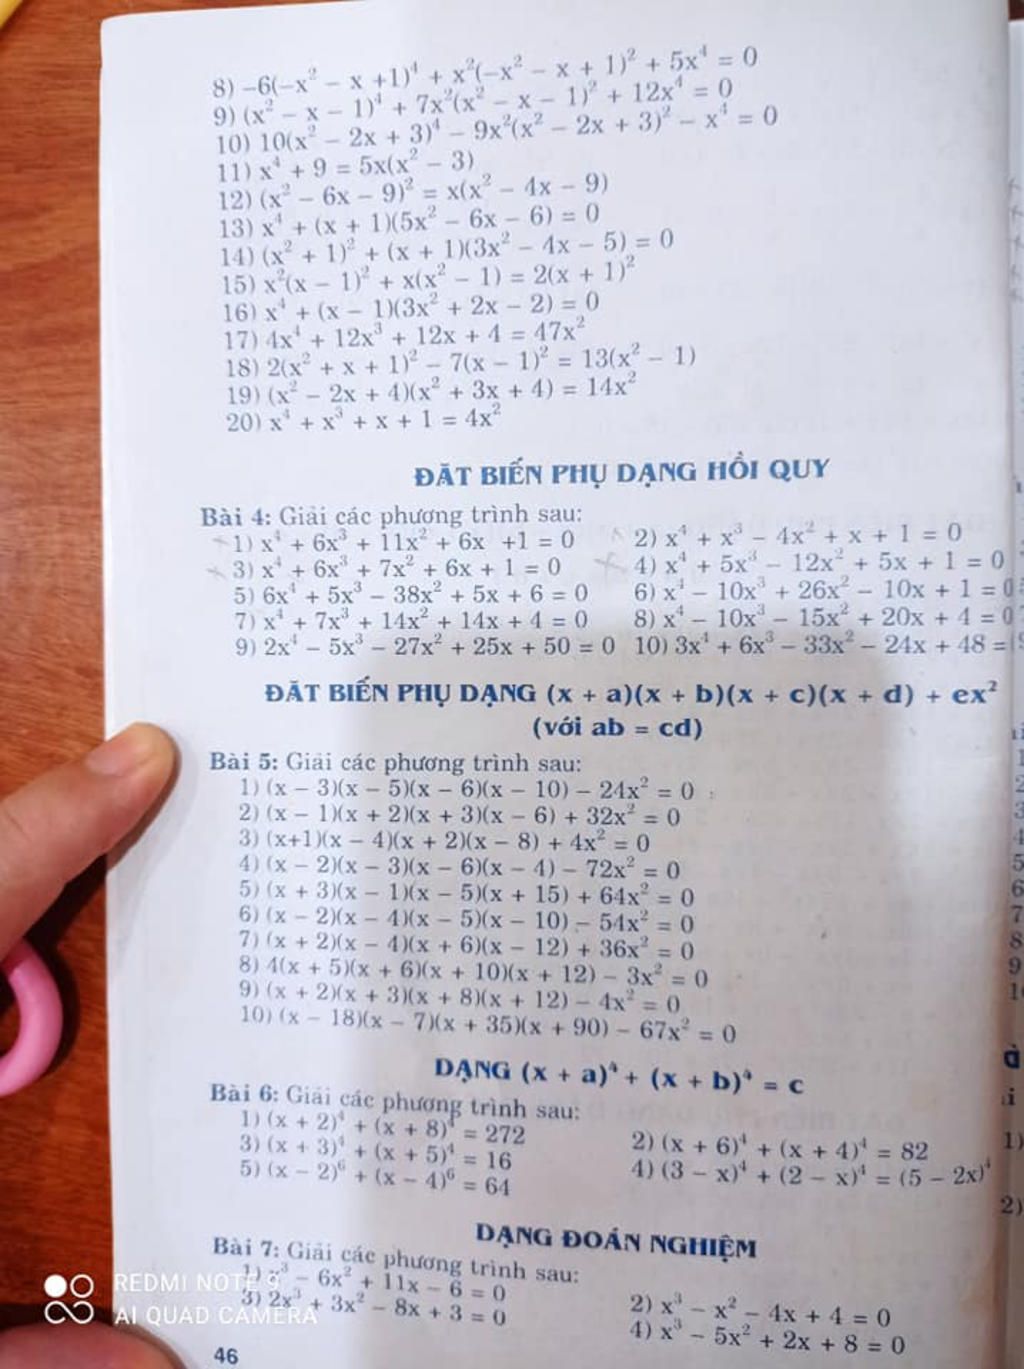 8) −6(−x² − x +1)⁴ + x²(−x² − x + 1)² + 5x⁴ = 0
9) (x² − x − 1)⁴ + 7x²(x² − x − 1)² + 12x⁴ = 0
10) 10(x² − 2x + 3)⁴ − 9x²(x² − 2x + 3)² − x⁴ = 0
11) x⁴ + 9 = 5x(x² − 3)
12) (x² − 6x − 9)² = x(x² − 4x − 9)
13) x⁴ + (x + 1)(5x² − 6x − 6) = 0
14) (x² + 1)² + (x + 1)(3x² − 4x − 5) = 0
15) x²(x − 1)² + x(x² − 1) = 2(x + 1)²
16) x⁴ + (x − 1)(3x² + 2x − 2) = 0
17) 4x⁴ + 12x³ + 12x + 4 = 47x²
18) 2(x² + x + 1)² − 7(x − 1)² = 13(x² − 1)
19) (x² − 2x + 4)(x² + 3x + 4) = 14x²
20) x⁴ + x³ + x + 1 = 4x²
ĐẶT BIẾN PHỤ DẠNG HỒI QUY
Bài 4: Giải các phương trình sau:
1) x⁴ + 6x³ + 11x² + 6x +1 = 0 2) x⁴ + x³ − 4x² + x + 1 = 0
3) x⁴ + 6x³ + 7x² + 6x + 1 = 0 4) x⁴ + 5x³ − 12x² + 5x + 1 = 0
5) 6x⁴ + 5x³ − 38x² + 5x + 6 = 0 6) x⁴ − 10x³ + 26x² − 10x + 1 = 0
7) x⁴ + 7x³ + 14x² + 14x + 4 = 0 8) x⁴ − 10x³ − 15x² + 20x + 4 = 0
9) 2x⁴ − 5x³ − 27x² + 25x + 50 = 0 10) 3x⁴ + 6x³ − 33x² − 24x + 48 =
ĐẶT BIẾN PHỤ DẠNG (x + a)(x + b)(x + c)(x + d) + ex²
(với ab = cd)
Bài 5: Giải các phương trình sau:
1) (x − 3)(x − 5)(x − 6)(x − 10) − 24x² = 0
2) (x − 1)(x + 2)(x + 3)(x − 6) + 32x² = 0
3) (x+1)(x − 4)(x + 2)(x − 8) + 4x² = 0
4) (x − 2)(x − 3)(x − 6)(x − 4) − 72x² = 0
5) (x + 3)(x − 1)(x − 5)(x + 15) + 64x² = 0
6) (x − 2)(x − 4)(x − 5)(x − 10) − 54x² = 0
7) (x + 2)(x − 4)(x + 6)(x − 12) + 36x² = 0
8) 4(x + 5)(x + 6)(x + 10)(x + 12) − 3x² = 0
9) (x + 2)(x + 3)(x + 8)(x + 12) − 4x² = 0
10) (x − 18)(x − 7)(x + 35)(x + 90) − 67x² = 0
DẠNG (x + a)⁴ + (x + b)⁴ = c
Bài 6: Giải các phương trình sau:
1) (x + 2)⁴ + (x + 8)⁴ = 272 2) (x + 6)⁴ + (x + 4)⁴ = 82
3) (x + 3)⁴ + (x + 5)⁴ = 16 4) (3 − x)⁴ + (2 − x)⁴ = (5 − 2x)⁴
5) (x − 2)⁶ + (x − 4)⁶ = 64
DẠNG ĐOÁN NGHIỆM
Bài 7: Giải các phương trình sau:
1) x³ − 6x² + 11x − 6 = 0 2) x³ − x² − 4x + 4 = 0
3) 2x³ + 3x² − 8x + 3 = 0 4) x³ − 5x² + 2x + 8 = 0
REDMI NOTE 9
AI QUAD CAMERA
46